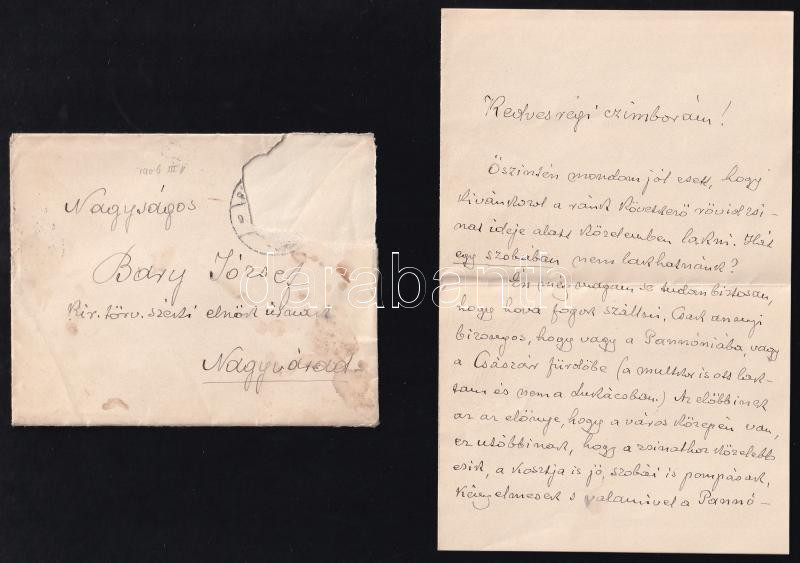 1906 III
Nagyságos
Bary József
Kir. törv. széki elnök úrnak
Nagyvárad.
Kedves régi czimborám!
Őszintén mondom jól esett, hogy
kivánkozol a ránk következő rövid zsi-
nat ideje alatt közelemben lakni. Hát
egy szobában nem lakhatnánk?
Én még magam se tudom biztosan,
hogy hova fogok szállni, Csak annyi
bizonyos, hogy vagy a Pannóniába, vagy
a Császár fürdőbe (a multkor is ott lak-
tam és nem a Lukácsban.) Az előbbinek
az az előnye, hogy a város közepén van,
ez utóbbinak, hogy a zsinathoz közelebb
esik, a kosztja is jó, szobái is pompásak,
kényelmesek s valamivel a Pannó-
darabanth